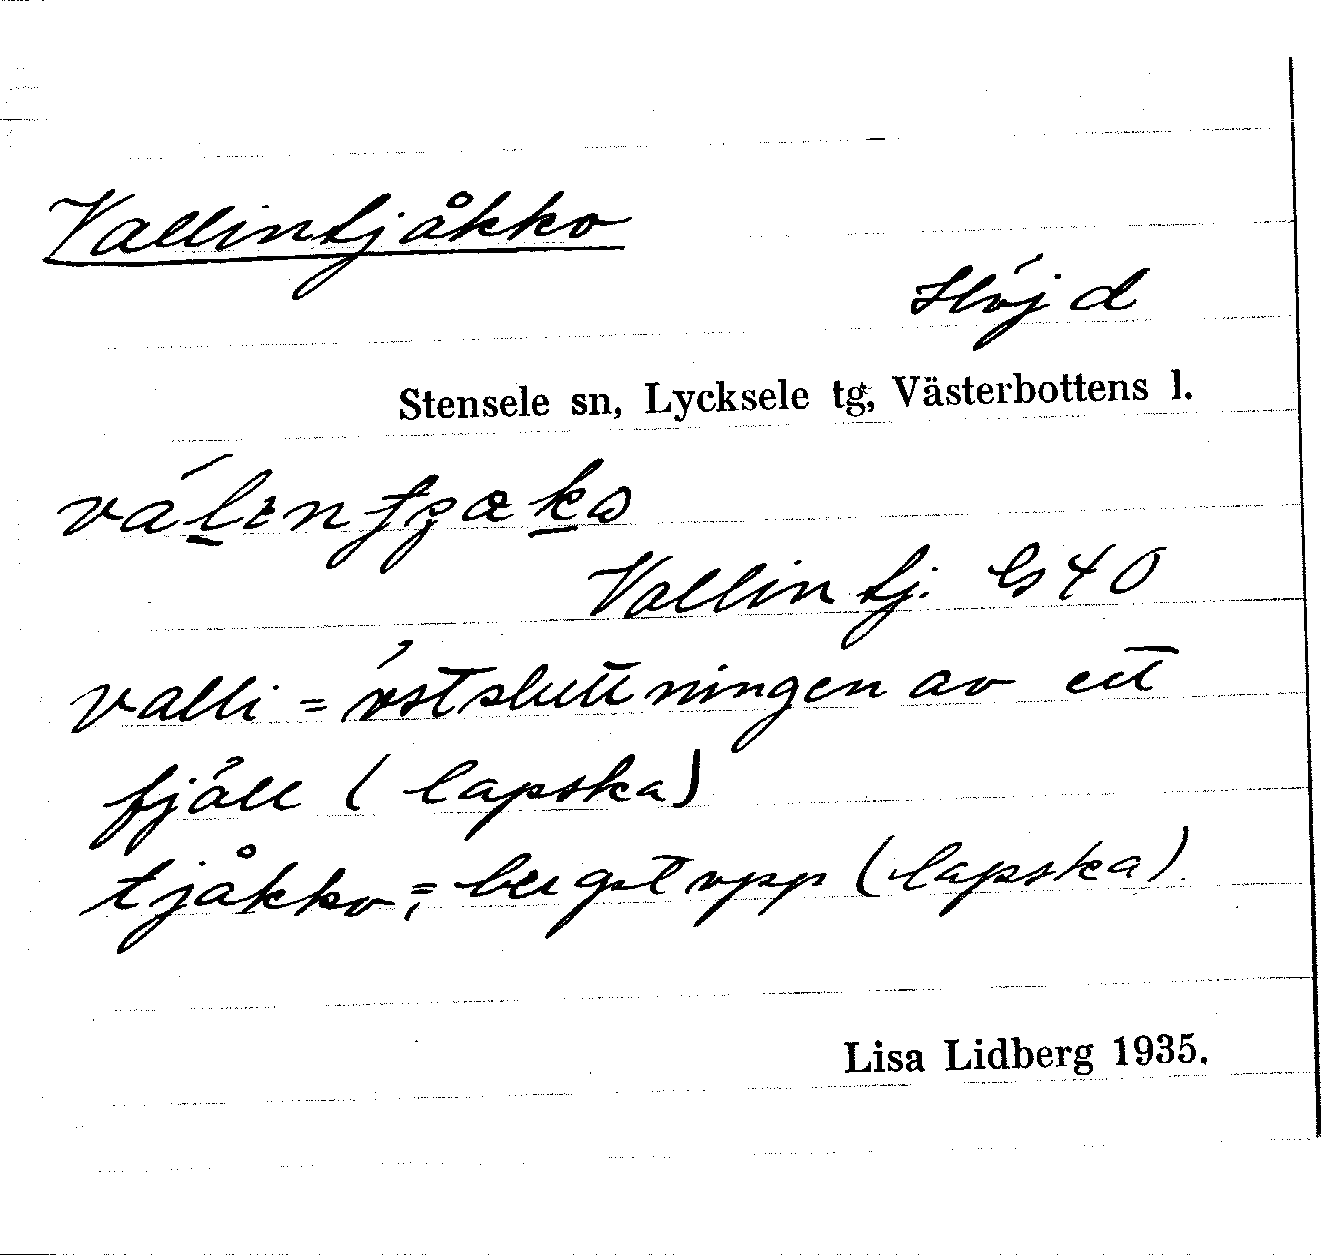 Vallintjåkko
Höjd
Stensele sn, Lycksele tg, Västerbottens l.
Vallintj. Gs 40
valli = östsluttningen av ett
fjäll (lapska)
tjåkko, = bergstopp (lapska)
Lisa Lidberg 1935.